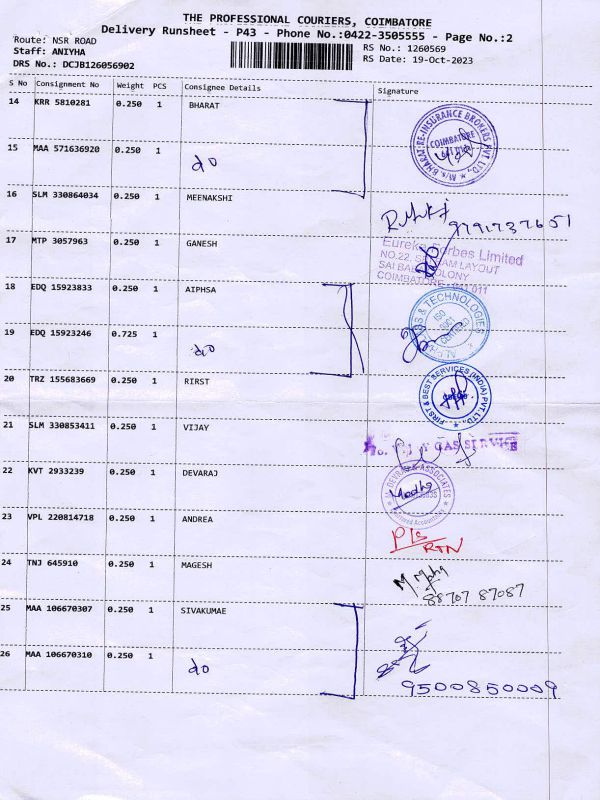 THE PROFESSIONAL COURIERS, COIMBATORE
Delivery Runsheet - P43 - Phone No.:0422-3505555 - Page No.:2
Route: NSR ROAD
Staff: ANIYHA
DRS No.: DCJB126056902
RS No.: 1260569
RS Date: 19-Oct-2023
S No Consignment No Weight PCS Consignee Details Signature
14 KRR 5810281 0.250 1 BHARAT
BHARAT RE-INSURANCE BROKERS PVT. LTD.,
COIMBATORE
15 MAA 571636920 0.250 1 do
16 SLM 330864034 0.250 1 MEENAKSHI
9791737651
17 MTP 3057963 0.250 1 GANESH
Eureka Forbes Limited
NO.22, LAYOUT
SAI BABA COLONY
COIMBATORE - 641 011
18 EDQ 15923833 0.250 1 AIPHSA
& TECHNOLOGIES
ISO
9001
CERTIFIED
19 EDQ 15923246 0.725 1 do
20 TRZ 155683669 0.250 1 RIRST
FIRST & BEST SERVICES (INDIA) PVT. LTD.,
21 SLM 330853411 0.250 1 VIJAY
GAS SERVICE
22 KVT 2933239 0.250 1 DEVARAJ
& ASSOCIATES
Madhu
23 VPL 220814718 0.250 1 ANDREA
P/s
RTN
24 TNJ 645910 0.250 1 MAGESH
88707 87087
25 MAA 106670307 0.250 1 SIVAKUMAE
26 MAA 106670310 0.250 1 do
9500850009